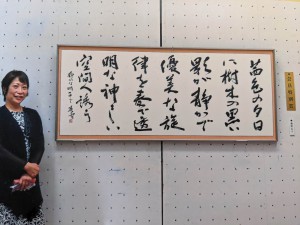 茜色の夕日
に樹木の黒い
影が静かで
優美な旋
律を奏で透
明な神しい
空間へ誘う